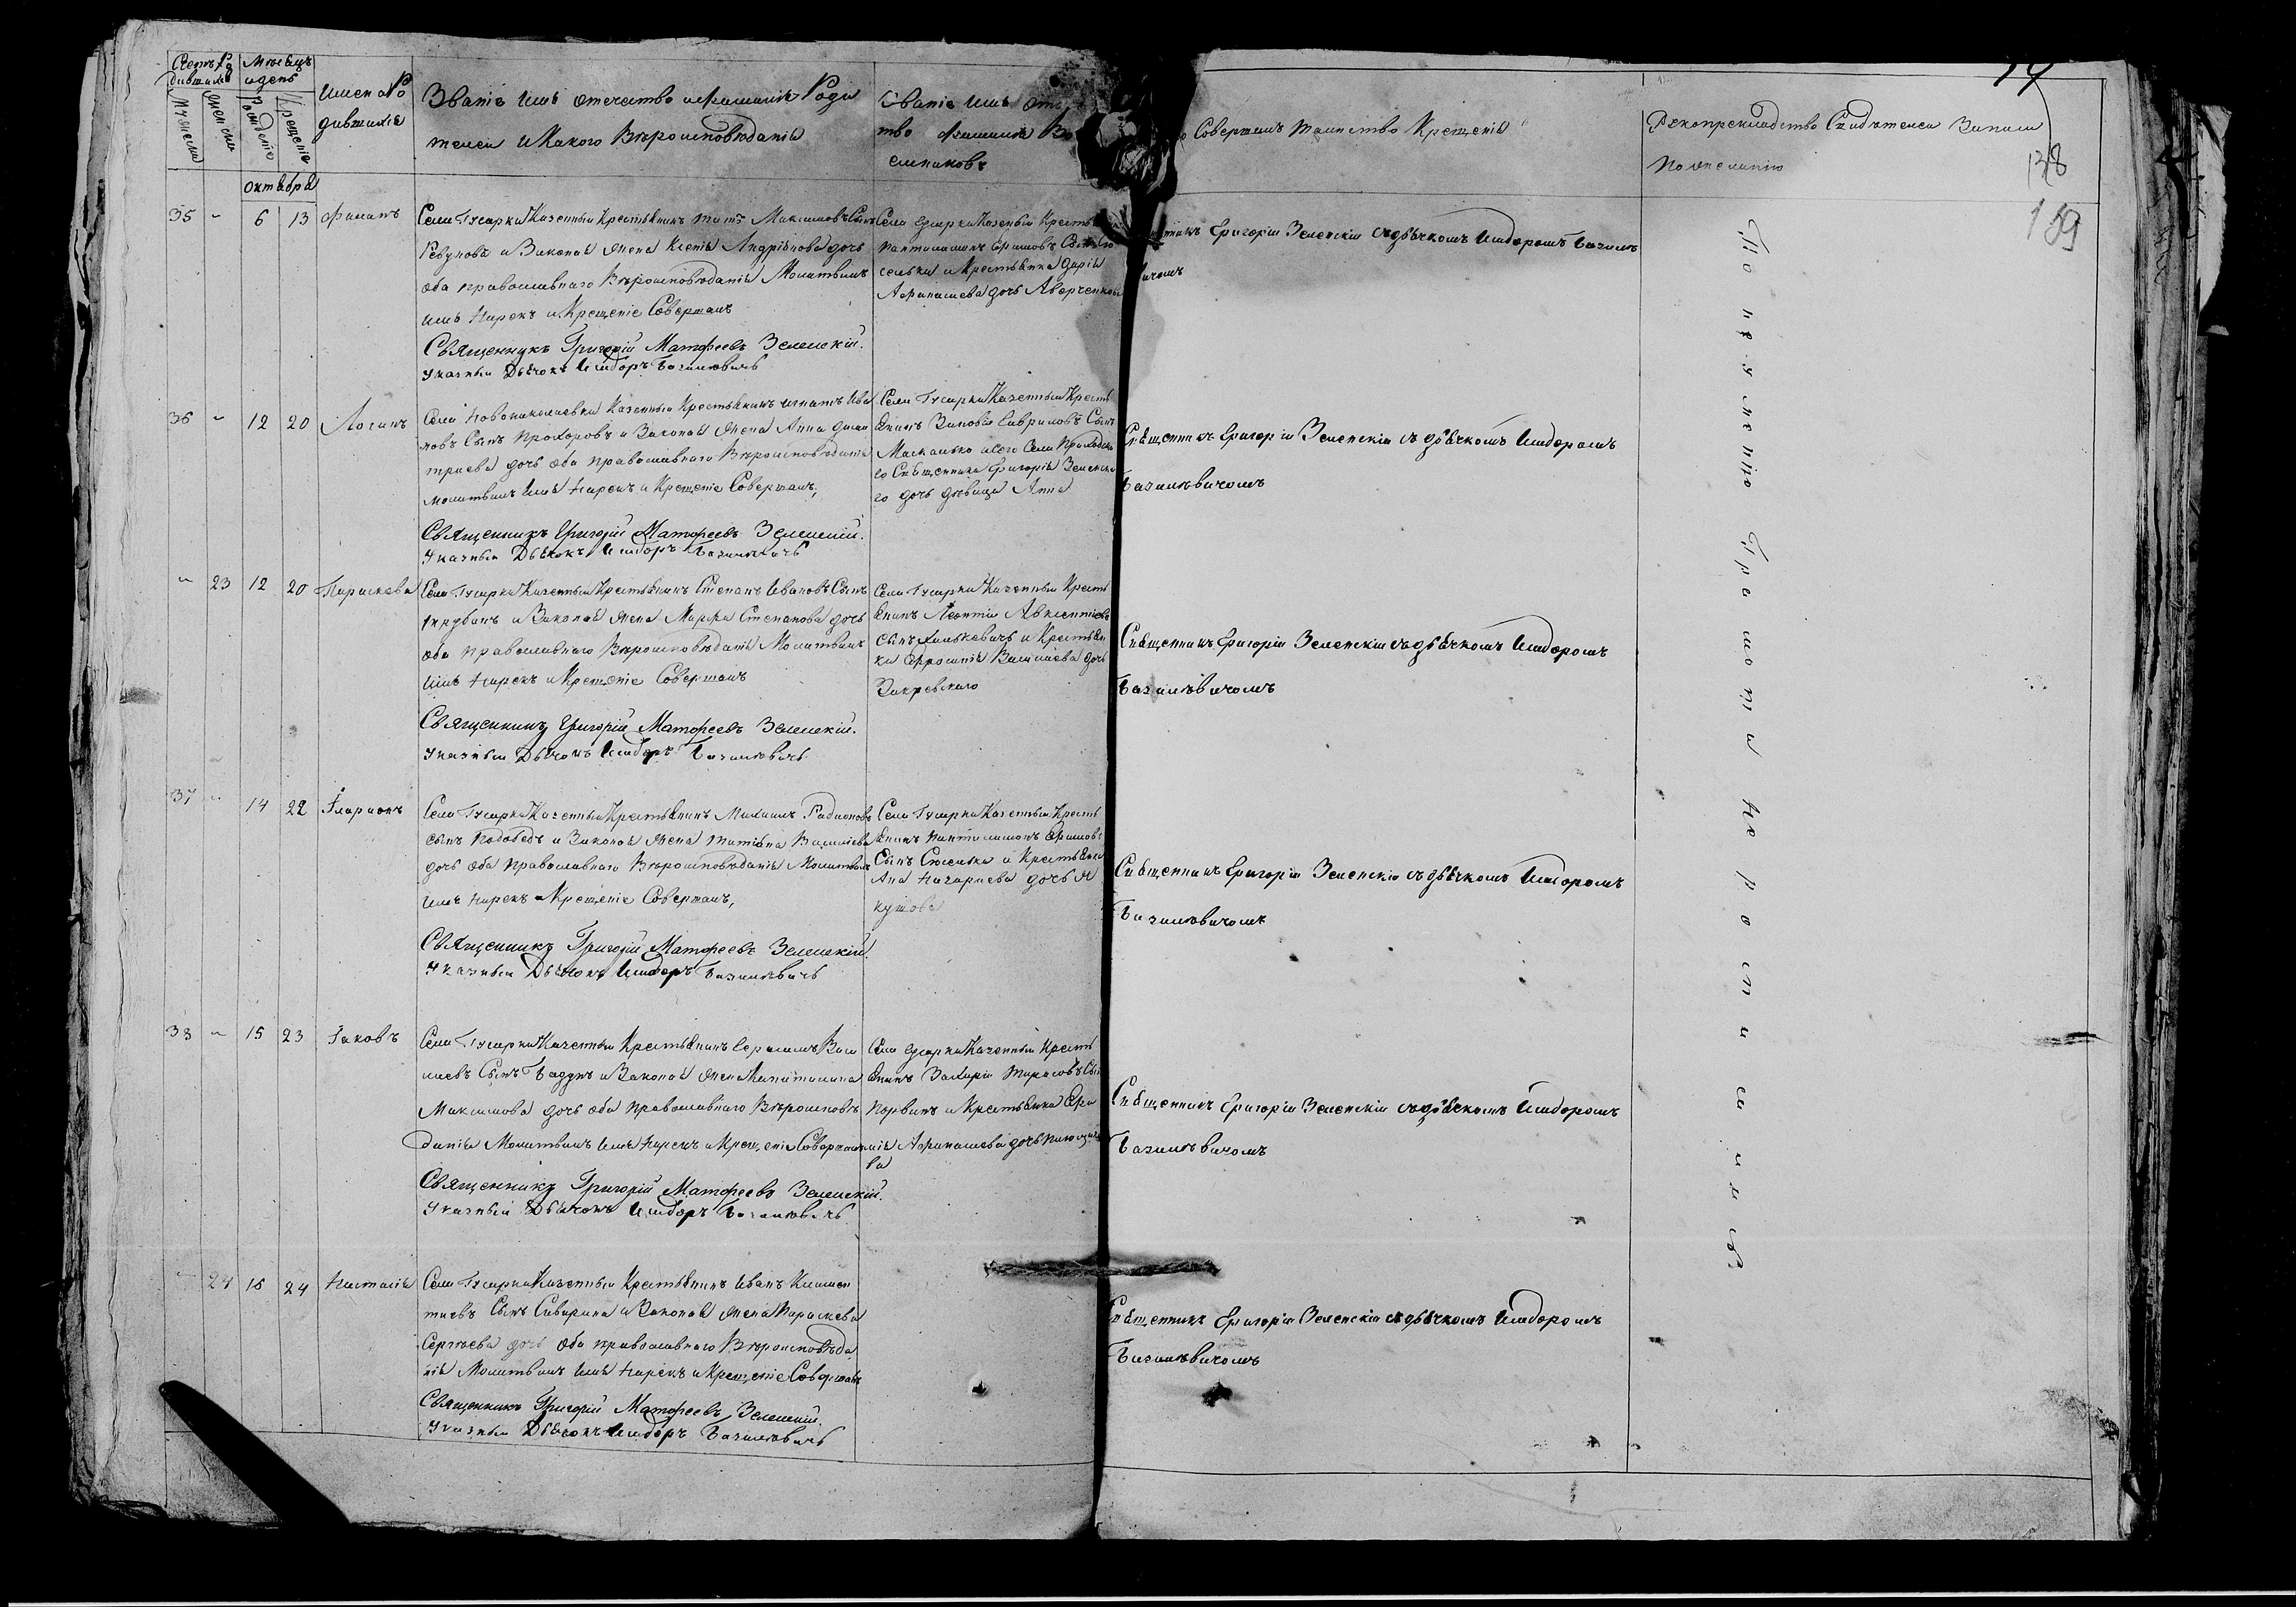 Счетъ Ро
дившихся
Мужеска
Женска
Месецъ
и день
Рожденія
Крещенія
Имена Ро
дившихся
Званіе Имя отечество и фамилія Роди
телей и Какого Вероисповѣданія
Званіе Имя отче
ство фамилія Во
спріемниковъ
Совершалъ таинство Крещенія
Рукоприкладство Свидѣтелей Записи
По желанію
138
139
октября
35 - 6 13 Филипъ
Села Гусарки Казенный Крестьянинъ Титъ Максимовъ Сынъ
Ревунова и Законая жена Ксенія Андріянова дочь
оба православнаго Вѣроисповѣданія Молитвилъ
имя Нарекъ и Крещеніе Совершалъ
Священникъ Григорій Матфеевъ Зеленскій.
Указный Дьячокъ Исидоръ Базилевичь
Села Гусарки Казенный Крестья
Пантилимонъ Ефимовъ Сынъ Сю
селька и Крестьянка Дарія
Афанасиева дочь Аверченкова
Григорій Зеленскій съ дьячкомъ Исидоромъ Базиле
вичомъ
36 - 12 20 Логинъ
Села Новониколаевки Казенный Крестьянинъ Игнатъ Ива
новъ Сынъ Прохоровъ и Законая жена Анна Дими
триева дочь оба православнаго Вѣроисповѣданія
молитвилъ Имя Нарекъ и Крещеніе Совершалъ,
Священникъ Григорій Матфеевъ Зеленскій.
Указный Дьячокъ Исидоръ Базилевичь
Села Гусарки Казенный Кресть
янинъ Зиновій Гавриловъ Сынъ
Москалько и сего Села Приходско
го Священника Григорія Зеленска
го дочь дѣвица Анна
Священникъ Григорій Зеленскій съ дьячкомъ Исидоромъ
Базилевичомъ
- 23 12 20 Параскева
Села Гусарки Казенный Крестьянинъ Степанъ Ивановъ Сынъ
и Законая жена Марфа Степанова дочь
оба православнаго Вѣроисповѣданія Молитвилъ
Имя Нарекъ и Крещеніе Совершалъ
Священникъ Григорій Матфеевъ Зеленскій.
Указный Дьячокъ Исидоръ Базилевичь
Села Гусарки Казенный Кресть
янинъ Леонтій Авксентіевъ
Сынъ Хилькевичь и Крестьян
ка Ефросинія Василіева дочь
Закревскаго
Священникъ Григорій Зеленскій съ дьячкомъ Исидоромъ
Базилевичомъ
37 - 14 22 Іларионъ
Села Гусарки Казенный Крестьянинъ Михаилъ Радионовъ
Сынъ Подобедъ и Законая жена Татіяна Василіева
дочь оба православнаго Вѣроисповѣданія Молитвилъ
Имя Нарекъ и Крещеніе Совершалъ,
Священникъ Григорій Матфеевъ Зеленскій.
Указный Дьячокъ Исидоръ Базилевичь
Села Гусарки Казенный Кресть
янинъ Пантилимонъ Ефимовъ
Сынъ Сюселька и Крестьянка
Ана Назариева дочь Я
кушова
Священникъ Григорій Зеленскій съ дьячкомъ Исидоромъ
Базилевичомъ
38 - 15 23 Іаковъ
Села Гусарки Казенный Крестьянинъ Герасимъ Васи
лиевъ Сынъ и Законая жена Капитилина
Максимова дочь оба православнаго Вѣроисповѣ
данія Молитвилъ Имя Нарекъ и Крещеніе Совершалъ
Священникъ Григорій Матфеевъ Зеленскій.
Указный Дьячокъ Исидоръ Базилевичь
Села Гусарки Казенный Кресть
янинъ Захарій Тарасовъ Сынъ
и Крестьянка
Афанасиева дочь
ва
Священникъ Григорій Зеленскій съ дьячкомъ Исидоромъ
Базилевичомъ
- 24 16 24 Настасія
Села Гусарки Казенный Крестьянинъ Иванъ Климен
тиевъ Сынъ Саварина и Законая жена Параскева
Сергѣева дочь оба православнаго Вѣроисповѣда
нія Молитвилъ Имя Нарекъ и Крещеніе Совершалъ
Священникъ Григорій Матфеевъ Зеленскій.
Указный Дьячокъ Исидоръ Базилевичь
Священникъ Григорій Зеленскій съ дьячкомъ Исидоромъ
Базилевичомъ
По неумению Грамоти Не росписались